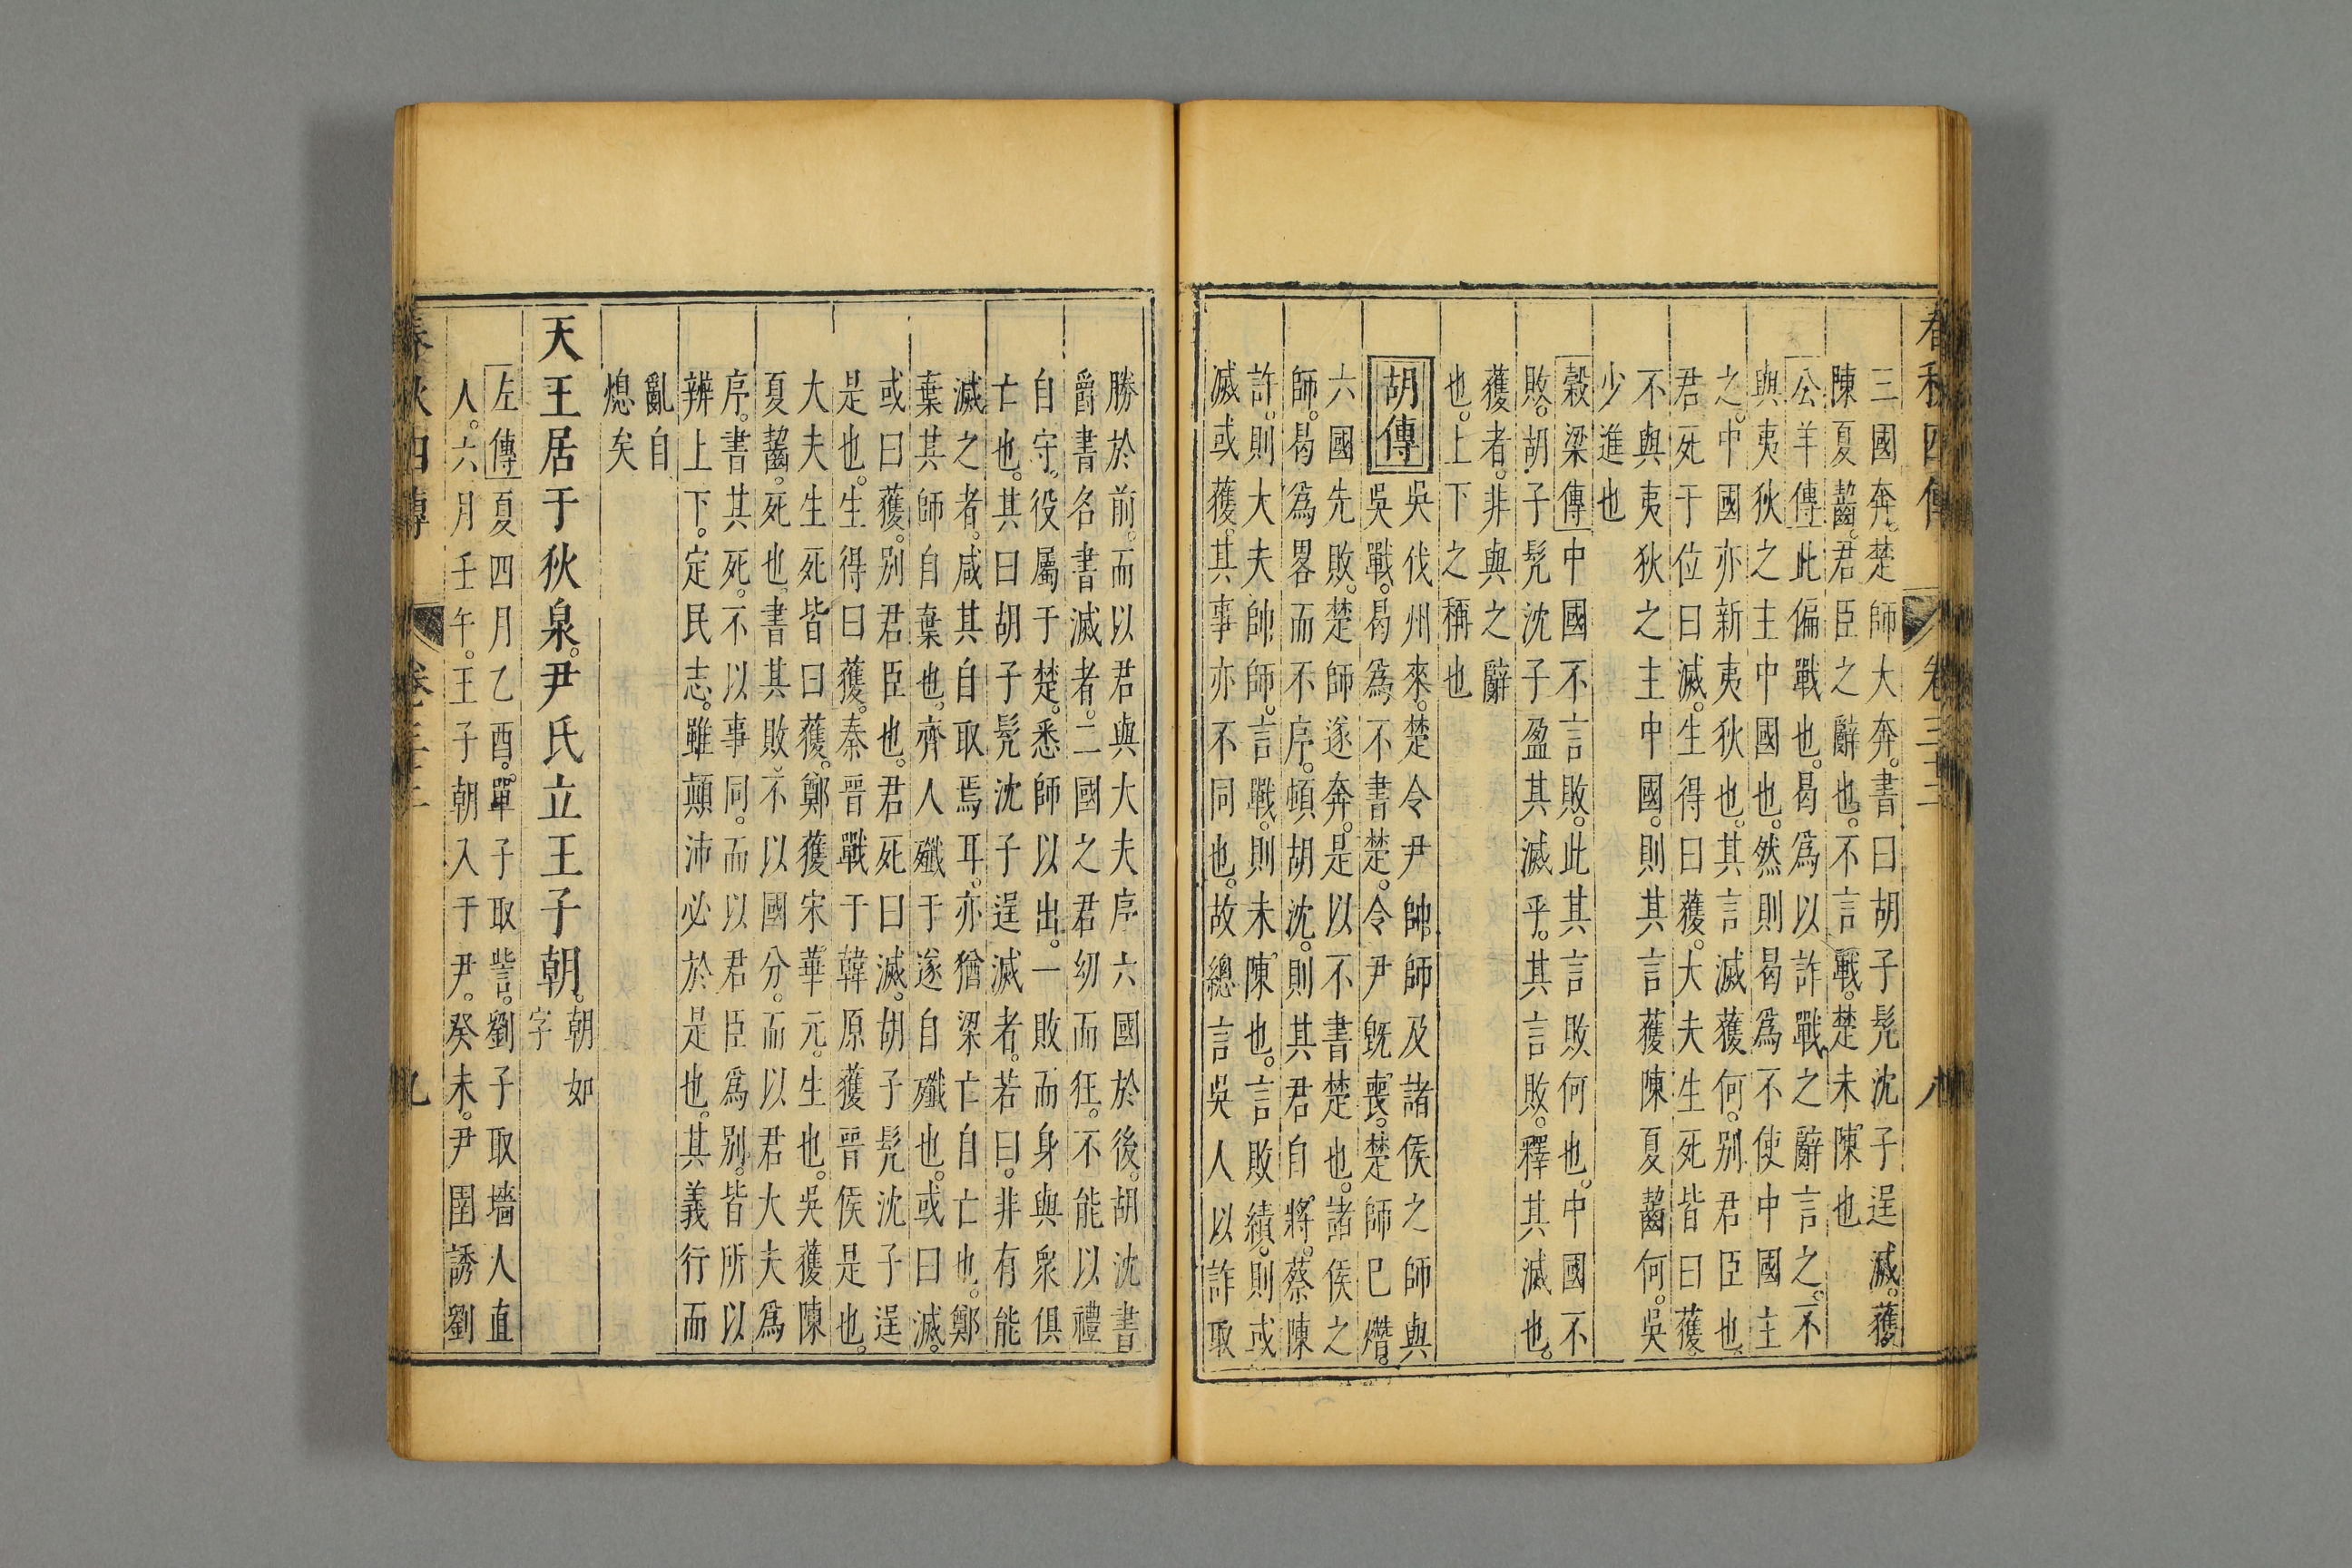 春秋四傳 卷三十三 八
三國奔。楚師大奔。書曰胡子髡沈子逞滅。獲
陳夏齧。君臣之辭也。不言戰。楚未陳也
公羊傳此偏戰也。曷為以詐戰之辭言之。不
與夷狄之主中國也。然則曷為不使中國主
之。中國亦新夷狄也。其言滅獲何。別君臣也。
君死于位曰滅。生得曰獲。大夫生死皆曰獲。
不與夷狄之主中國。則其言獲陳夏齧何。吳
少進也
穀梁傳中國不言敗。此其言敗何也。中國不
敗。胡子髡沈子盈其滅乎。其言敗。釋其滅也。
獲者。非與之辭
也。上下之稱也
胡傳吳伐州來。楚令尹帥師及諸侯之師與
吳戰。曷為不書楚。令尹既喪。楚師已熸。
六國先敗。楚師遂奔。是以不書楚也。諸侯之
師。曷為畧而不序。頓胡沈。則其君自將。蔡陳
許。則大夫帥師。言戰。則未陳也。言敗績。則或
滅或獲。其事亦不同也。故總言吳人以詐取
勝於前。而以君與大夫序六國於後。胡沈書
爵書名書滅者。二國之君幼而狂。不能以禮
自守。役屬于楚。悉師以出。一敗而身與衆俱
亡也。其曰胡子髡沈子逞滅者。若曰。非有能
滅之者。咸其自取焉耳。亦猶梁亡自亡也。鄭
棄其師自棄也。齊人殲于遂自殲也。或曰滅。
或曰獲。別君臣也。君死曰滅。胡子髡沈子逞
是也。生得曰獲。秦晉戰于韓原獲晉侯是也。
大夫生死皆曰獲。鄭獲宋華元。生也。吳獲陳
夏齧。死也。書其敗。不以國分。而以君大夫為
序。書其死。不以事同。而以君臣為別。皆所以
辨上下。定民志。雖顛沛必於是也。其義行而
亂自
熄矣
天王居于狄泉。尹氏立王子朝。朝如
字
左傳夏四月乙酉。單子取訾。劉子取墻人直
人。六月壬午。王子朝入于尹。癸未。尹圉誘劉
春秋四傳 卷三十三 九